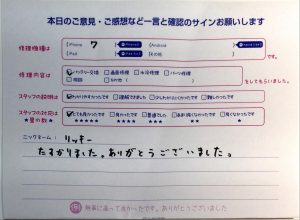 本日のご意見・ご感想など一言と確認のサインお願いします
修理機種は
iPhone 7 Android
iPad その他
修理内容は
バッテリー交換 画面修理 水没修理 パーツ修理
その他
をしてもらいました。
スタッフの説明は
わかりやすかったです 理解できました 少しわかりにくかったです 難しかったです
スタッフの対応は
★星の数★
とても良かったです 良かったです 普通でした あまり良くなかったです 良くなかったです
★★★★★ ★★★★ ★★★ ★★ ★
ニックネーム: リッキー
たすかりました。ありがとうございました。
無事に直って良かったです。ありがとうございました